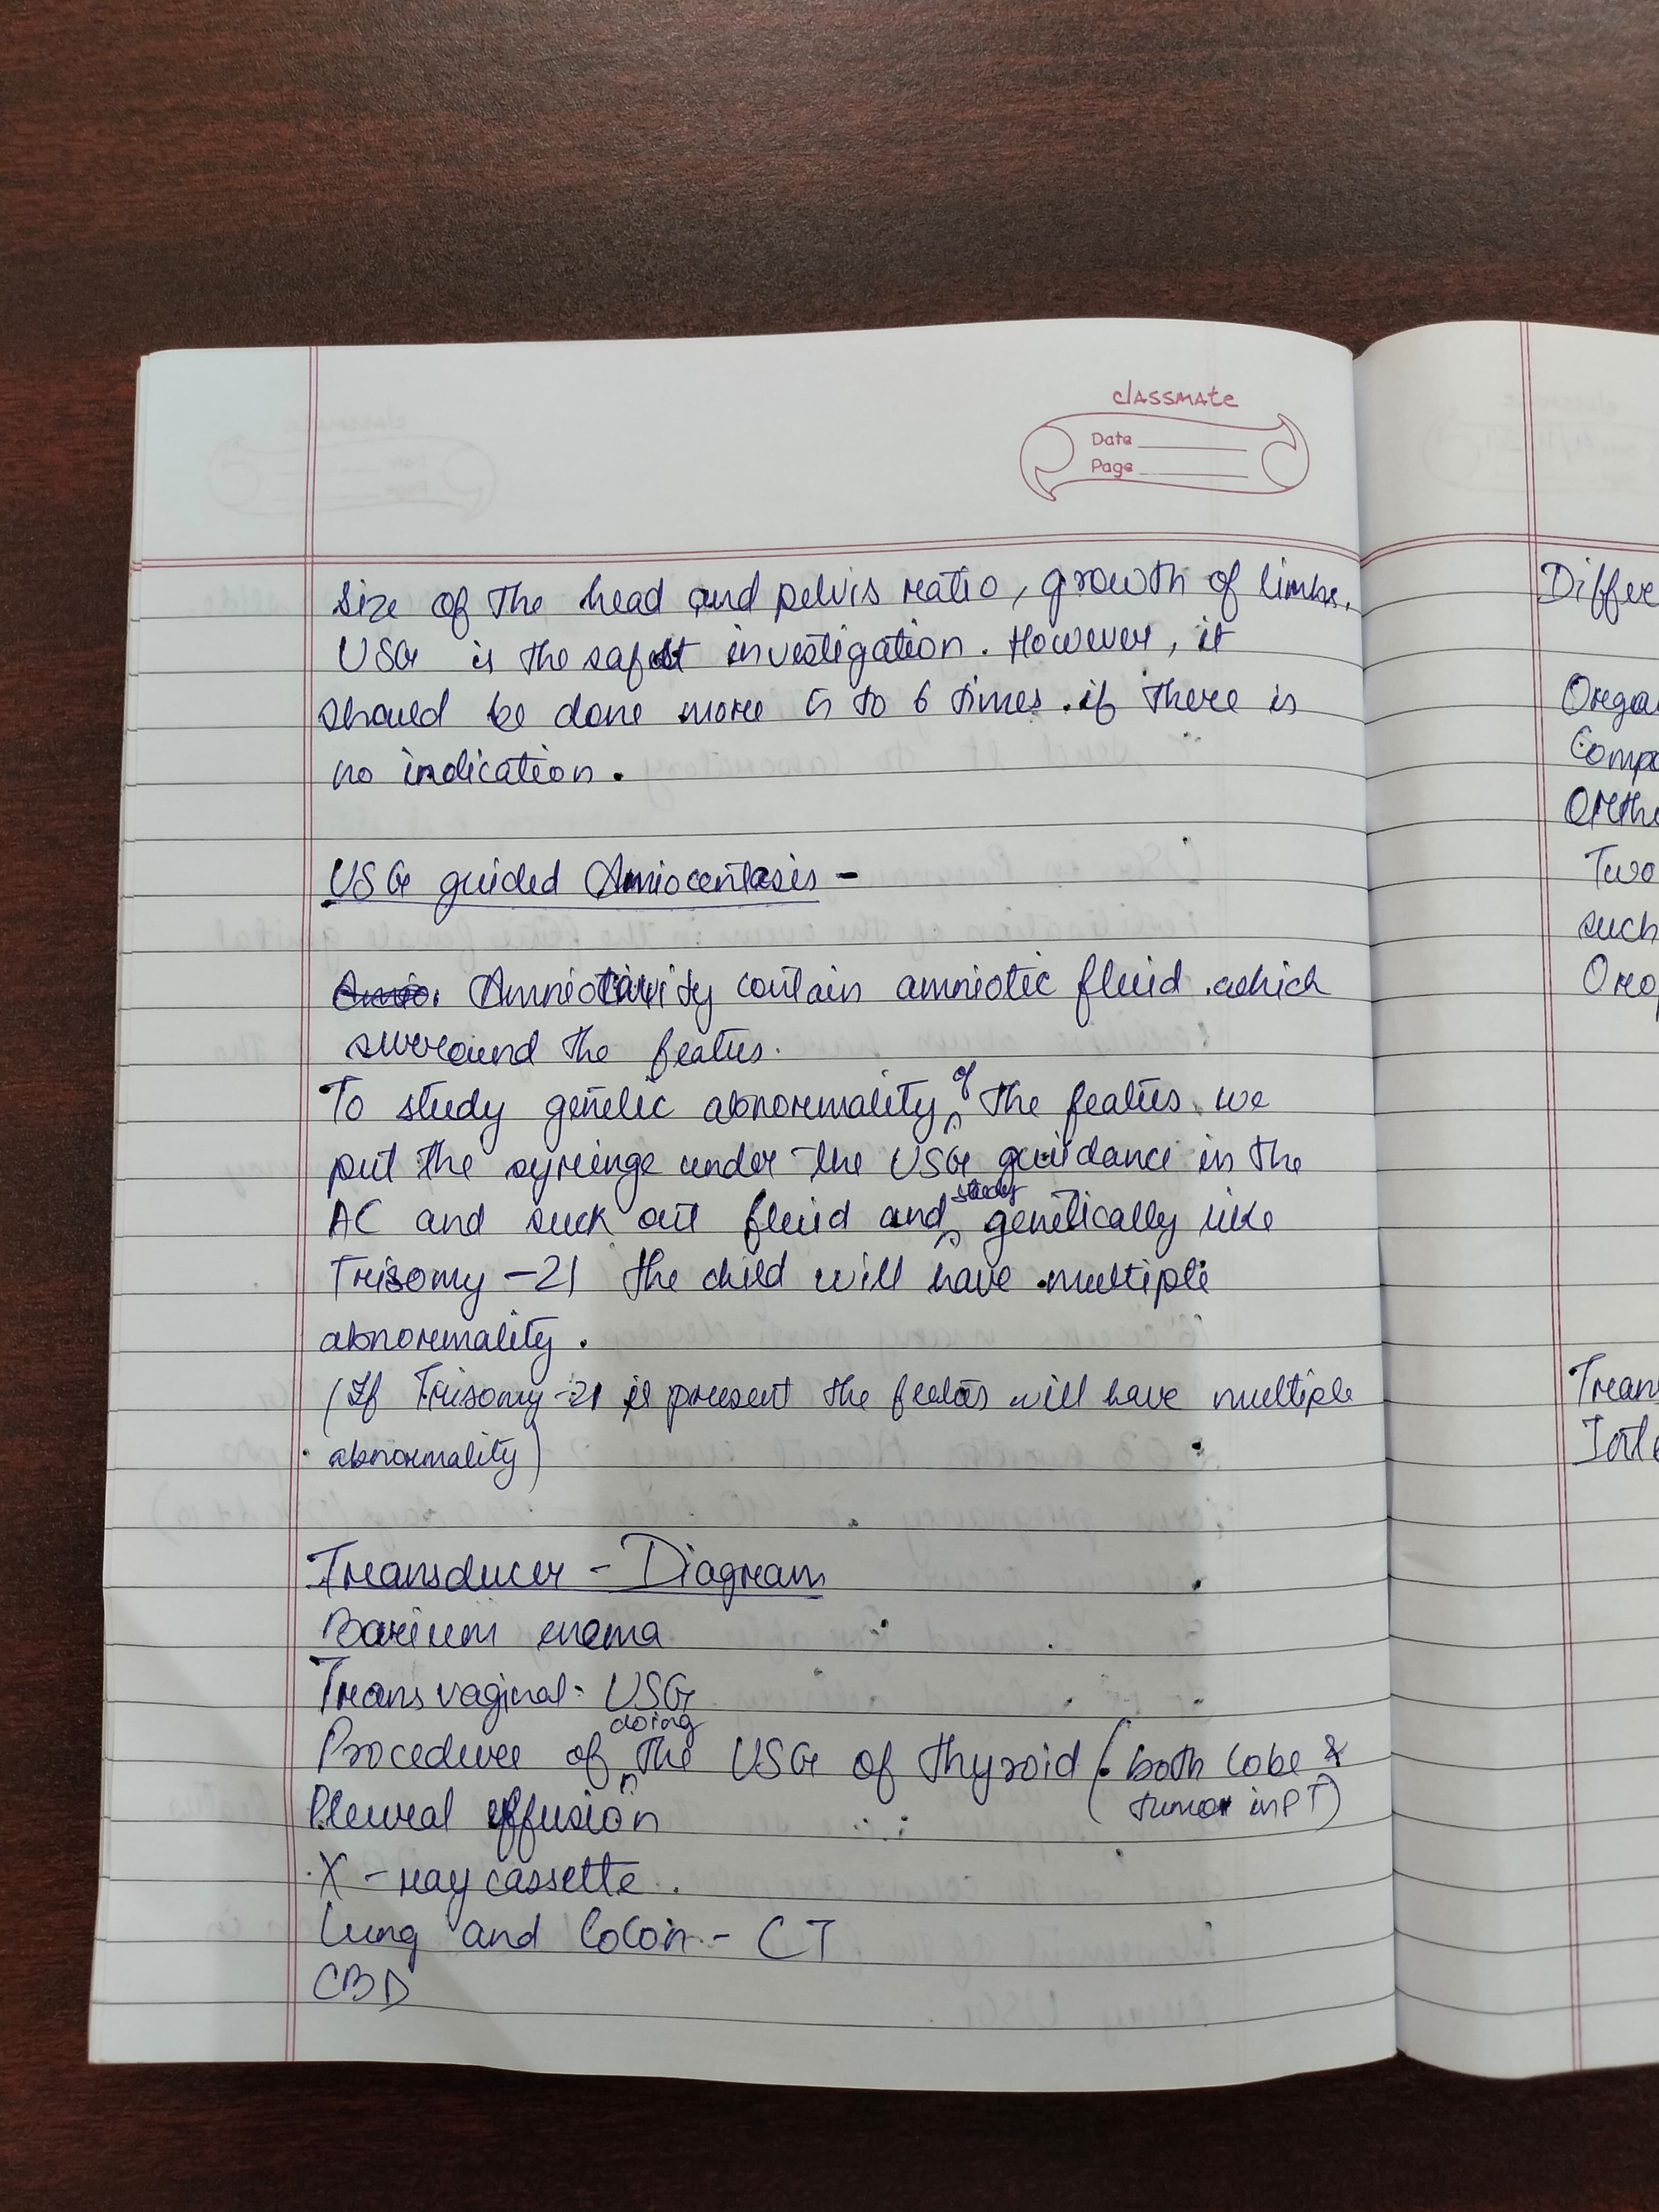 classmate
Date
Page
Size of the head and pelvis ratio, growth of limbs.
USG is the safest investigation. However, it
should be done more 5 to 6 times. if there is
no indication.
USG guided Amiocentasis -
Amniotic contain amniotic fluid which
surround the featus.
To study genetic abnormality of the featus we
put the syringe under the USG guidance in the
AC and suck out fluid and study genetically like
Trisomy -21 the child will have multiple
abnormality.
(If Trisomy-21 is present the featus will have multiple
abnormality)
Transducer - Diagram
Barium enema
Trans vaginal USG
Procedure of doing the USG of thyroid (both lobe &
tumor in PT)
Pleural effusion
X-ray cassette.
Lung and Colon - CT
CBD
Differe
Orga
Compo
Ortho
Two
such
Orop
Trans
Inte